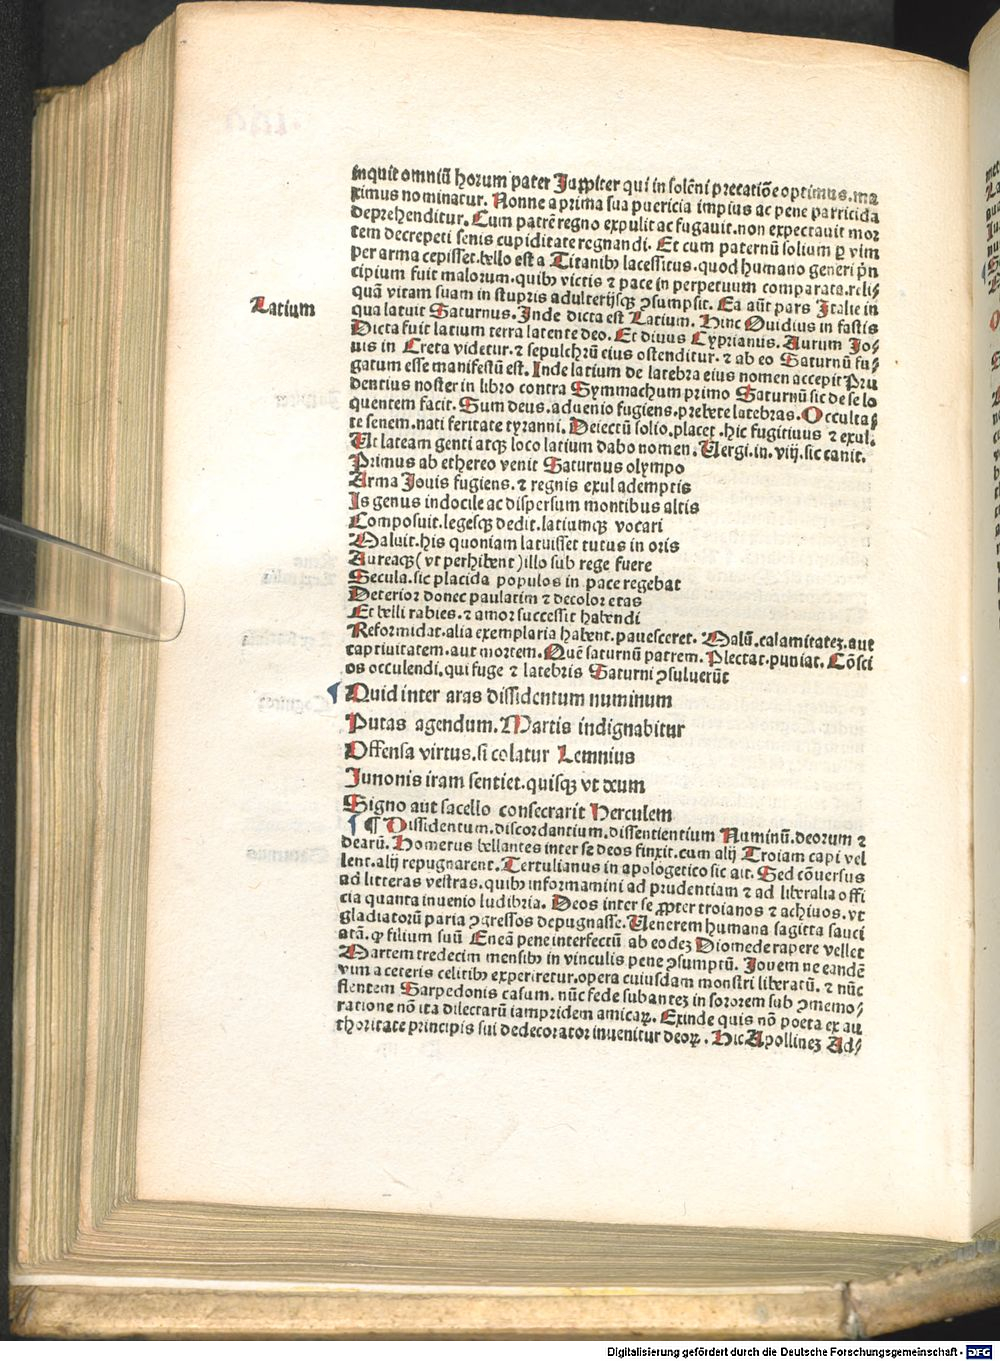 inquit omniū horum pater Iuppiter qui in solēni precatiōe optimus.ma
ximus nominatur. Nonne a prima sua puericia impius ac pene parricida
deprehenditur. Cum patrē regno expulit ac fugauit.non expectauit mor
tem decrepeti senis cupiditate regnandi. Et cum paternū solium ꝑ vim
per arma cepisset.bello est a Titanibꝰ lacessitus.quod humano generi pͥn
cipium fuit malorum.quibꝰ victis ⁊ pace in perpetuum comparata.reli⸗
quā vitam suam in stupris adulterijsqꝫ ꝯsumpsit. Ea aūt pars Italie in
Latium
qua latuit Saturnus.Inde dicta est Latium. Hinc Ouidius in fastis
Dicta fuit latium terra latente deo. Et diuus Cyprianus. Aurum Io⸗
uis in Creta videtur.⁊ sepulchrū eius ostenditur.⁊ ab eo Saturnū fu⸗
gatum esse manifestū est. Inde latium de latebra eius nomen accepit Pru
dentius noster in libro contra Symmachum primo Saturnū sic de se lo
quentem facit. Sum deus.aduenio fugiens.prebete latebras. Occulta⸗
te senem.nati feritate tyranni. Deiectū solio.placet.hic fugitiuus ⁊ exul.
Ut lateam genti atqꝫ loco latium dabo nomen. Uergi.in.viij.sic canit.
Primus ab ethereo venit Saturnus olympo
Arma Iouis fugiens.⁊ regnis exul ademptis
Is genus indocile ac dispersum montibus altis
Composuit.legesqꝫ dedit.latiumqꝫ vocari
Maluit.his quoniam latuisset tutus in oris
Aureaqꝫ (vt perhibent) illo sub rege fuere
Secula.sic placida populos in pace regebat
Deterior donec paulatim ⁊ decolor etas
Et belli rabies.⁊ amor successit habendi
Reformidat.alia exemplaria habent.pauesceret. Malū.calamitateꝫ.aut
captiuitatem.aut mortem. Quē saturnū patrem. Plectat.puniat. Cōsci
os occulendi.qui fuge ⁊ latebris Saturni ꝯsuluerūt
Quid inter aras dissidentum numinum
Putas agendum. Martis indignabitur
Offensa virtus.si colatur Lemnius
Iunonis iram sentiet.quisqꝫ vt deum
Signo aut sacello consecrarit Herculem
¶ Dissidentum.discordantium.dissentientium Numinū.deorum ⁊
dearū. Homerus bellantes inter se deos finxit.cum alij Troiam capi vel
lent.alij repugnarent. Tertulianus in apologetico sic ait. Sed cōuersus
ad litteras vestras.quibꝰ informamini ad prudentiam ⁊ ad liberalia offi
cia quanta inuenio ludibria. Deos inter se ꝓpter troianos ⁊ achiuos.vt
gladiatorū paria ꝯgressos depugnasse. Uenerem humana sagitta sauci
atā. ꝙ filium suū Eneā pene interfectū ab eodeꝫ Diomede rapere vellet
Martem tredecim mensibꝰ in vinculis pene ꝯsumptū. Iouem ne eandē
vim a ceteris celitibꝰ experiretur.opera cuiusdam monstri liberatū. ⁊ nūc
flentem Sarpedonis casum. nūc fede subanteꝫ in sororem sub ꝯmemo⸗
ratione nō ita dilectarū iampridem amicaꝝ. Exinde quis nō poeta ex au
thoritate principis sui dedecorator inuenitur deoꝝ. Hic Apollineꝫ Ad⸗
Digitalisierung gefördert durch die Deutsche Forschungsgemeinschaft - DFG